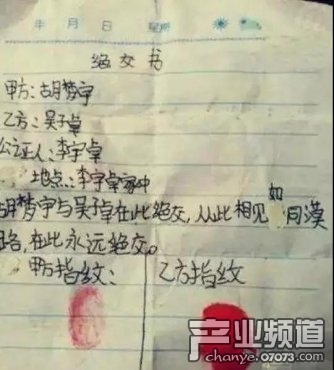 年 月 日 星期
绝交书
甲方:胡梦宇
乙方:吴子卓
公证人:李宇卓
地点:李宇卓家中
胡梦宇与吴子卓在此绝交,从此相见如同漠
路,在此永远绝交。
甲方指纹: 乙方指纹
产业频道
chanye.07073.com